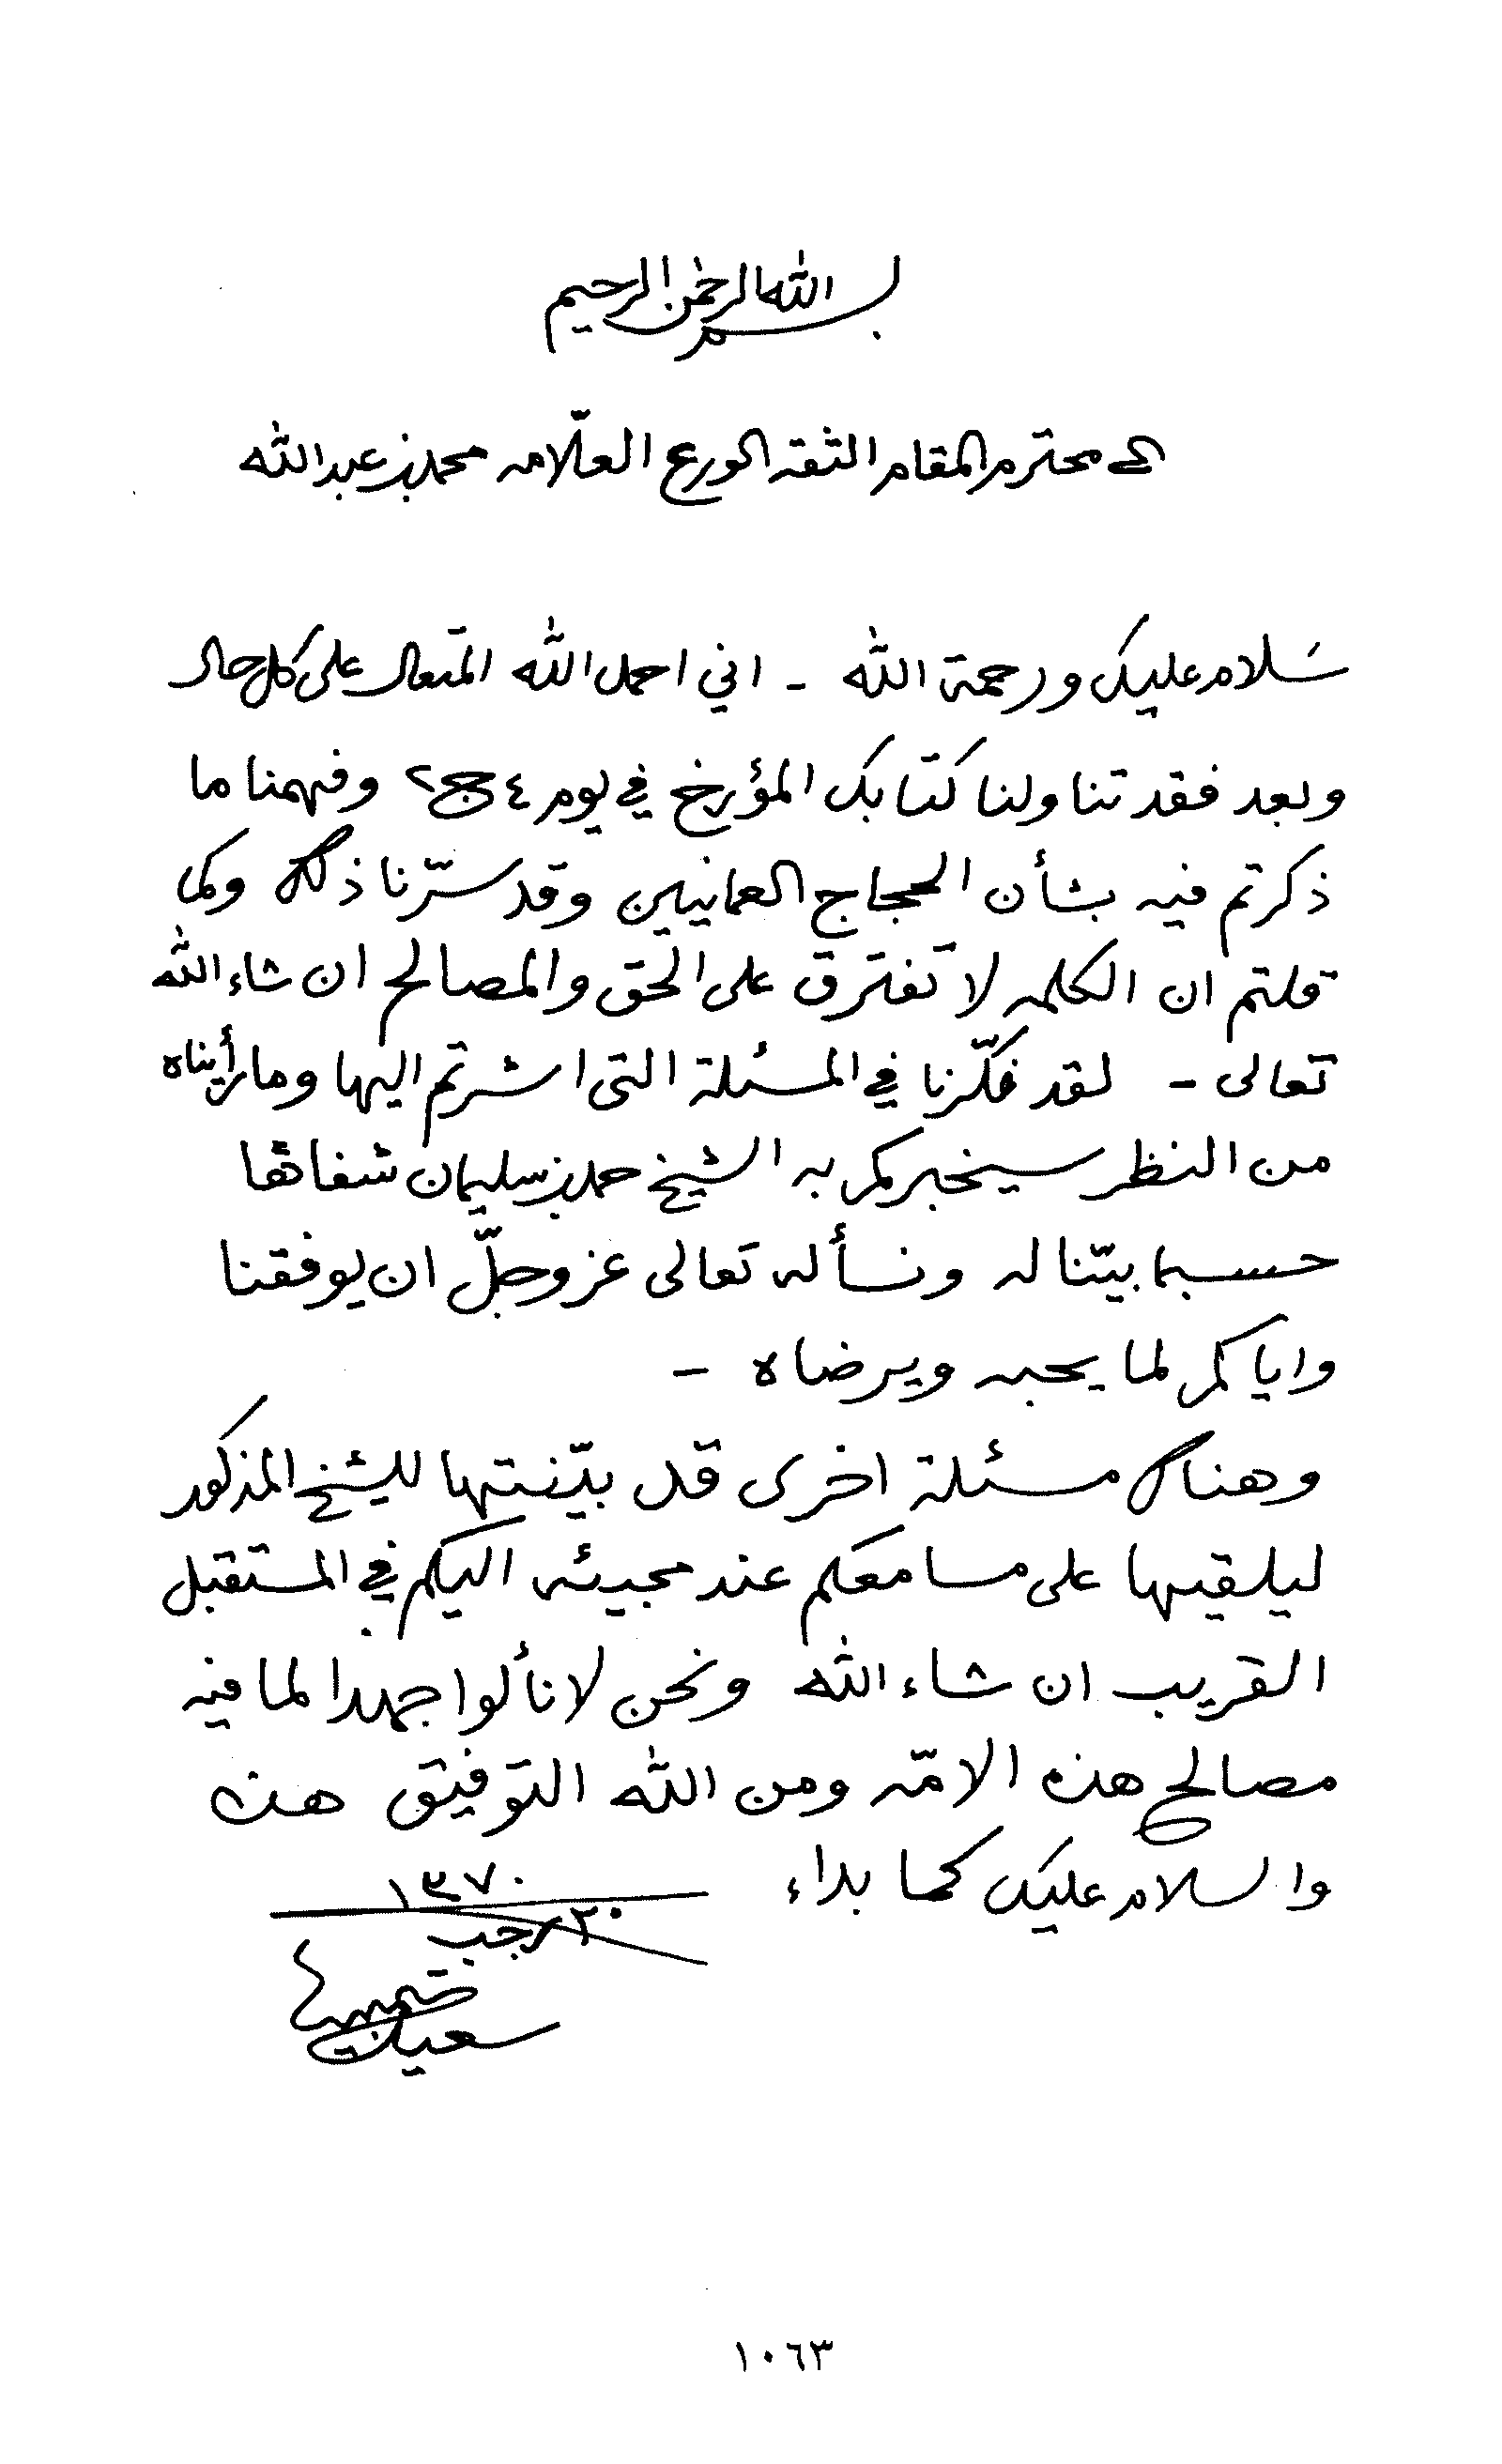 بسم الله الرحمن الرحيم
الى محترم المقام الثقه الورع العلّامه محمد بن عبد الله
سَلام عليك ورحمة الله - اني احمد الله المتعال على كل حال
وبعد فقد تناولنا كتابك المؤرخ في يوم ٤ ج٢ وفهمنا ما
ذكرتم فيه بشأن الحجاج العمانيين وقد سرّنا ذلك وكما
قلتم ان الكلمه لا تفترق على الحق والمصالح ان شاء الله
تعالى - لقد فكّرنا في المسئلة التى اشرتم اليها وما رأيناه
من النظر سيخبركم به الشيخ حمد بن سليمان شفاها
حسبما بيّنا له ونسأله تعالى عز وجلّ ان يوفقنا
واياكم لما يحبه ويرضاه -
وهناك مسئلة اخرى قد بيّنتها للشيخ المذكور
ليلقيها على مسامعكم عند مجيئه اليكم في المستقبل
القريب ان شاء الله ونحن لا نألوا جهدا لما فيه
مصالح هذه الامّه ومن الله التوفيق هذه
والسلام عليك كما بداء
١٣٧٠
٢٠ رجب
سعيد
١٠٦٣